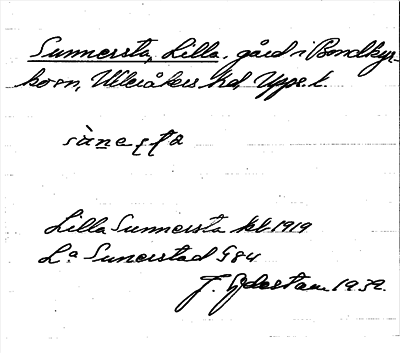 Sunnersta, Lilla. gård i Bondkyr-
kosn, Ulleråkers hd Upps. l.
sànesta
Lilla Sunnersta kb 1919
La Sunerstad G84
J. 1939.